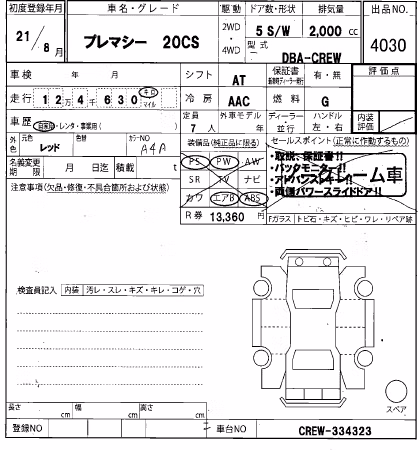 初度登録年月 車名・グレード 駆動 ドア数・形状 排気量 出品NO.
21/8月 プレマシー 20CS 2WD・4WD 5 S/W 2,000 cc 4030
型式 DBA-CREW
車検 年 月 シフト AT 保証書 有・無 評価点
走行 12万4千630 キロ マイル 冷房 AAC 燃料 G
車歴 自家用・レンタ・事業用( ) 定員 7人 外車モデル 年 ディーラー・並行 ハンドル 左・右 内装評価
外色 元色 レッド カラーNO A4A 装備品(純正品に限る) セールスポイント(正常に作動するもの)
名義変更期限 月 日迄 積載 t PS PW AW
・取説、保証書!!
・バックモニター!!
・アドバンスキー!!
・両側パワースライドドア!!
クレーム車
注意事項(欠品・修復・不具合箇所および状態) SR TV ナビ
カワ エアB ABS
R券 13,360 円 Fガラス トビ石・キズ・ヒビ・ワレ・リペア跡
検査員記入 内装 汚レ・スレ・キズ・キレ・コゲ・穴
スペア
長さ cm 幅 cm 高さ cm
登録NO 車台NO CREW-334323